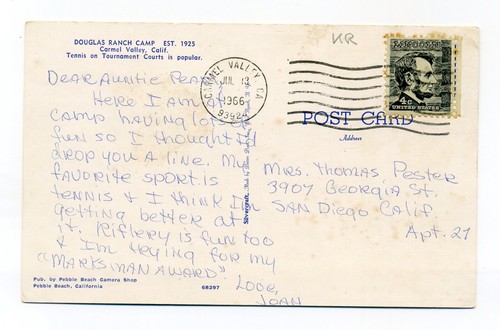 DOUGLAS RANCH CAMP EST. 1925
Carmel Valley, Calif.
Tennis on Tournament Courts is popular.
KR
CARMEL VALLEY, CA
JUL 13
1966
93924
4¢
UNITED STATES
POST CARD
Address
DEAR AUNTIE
HERE I AM AT
CAMP HAVING LOTS OF
FUN SO I THOUGHT I'd
DROP YOU A LINE. MY
FAVORITE SPORT IS
TENNIS & I THINK I'm
getting better at
it. Riflery is fun too
& I'm trying for my
"MARKSMAN AWARD"
LOVE,
JOAN
Mrs. Thomas Pester
3907 Georgia St.
SAN Diego Calif.
Apt. 27
Pub. by Pebble Beach Camera Shop
Pebble Beach, California
68297
Silvercraft